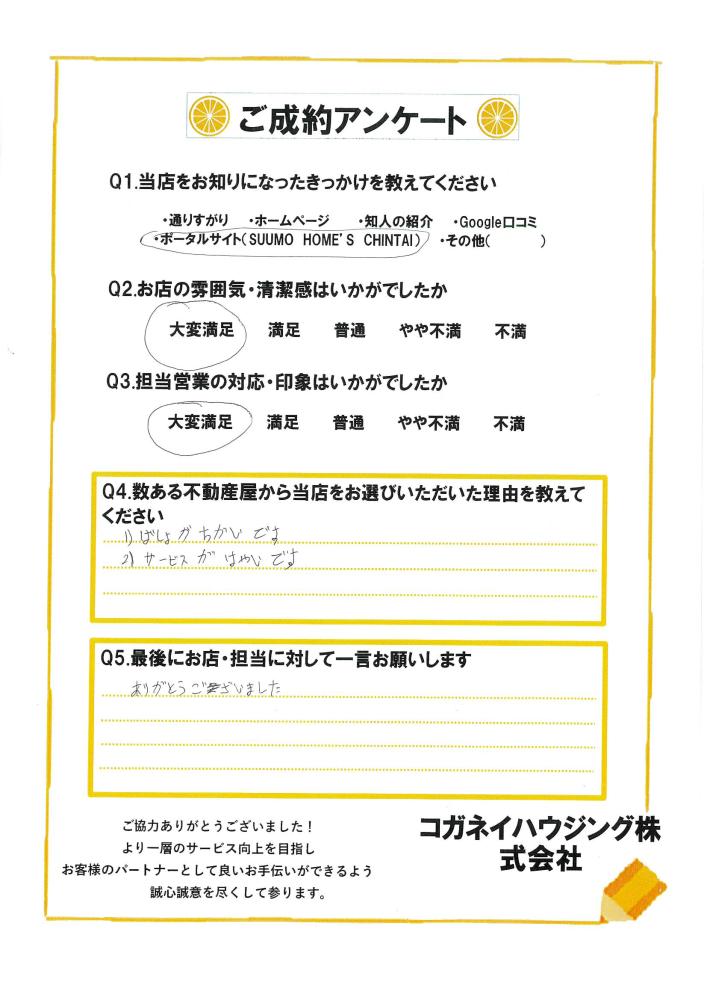 ご成約アンケート
Q1.当店をお知りになったきっかけを教えてください
・通りすがり ・ホームページ ・知人の紹介 ・Google口コミ
・ポータルサイト(SUUMO HOME'S CHINTAI) ・その他( )
Q2.お店の雰囲気・清潔感はいかがでしたか
大変満足 満足 普通 やや不満 不満
Q3.担当営業の対応・印象はいかがでしたか
大変満足 満足 普通 やや不満 不満
Q4.数ある不動産屋から当店をお選びいただいた理由を教えて
ください
1) ばしょが ちかい です
2) サービス が はやい です
Q5.最後にお店・担当に対して一言お願いします
ありがとうございました
ご協力ありがとうございました!
より一層のサービス向上を目指し
お客様のパートナーとして良いお手伝いができるよう
誠心誠意を尽くして参ります。
コガネイハウジング株
式会社